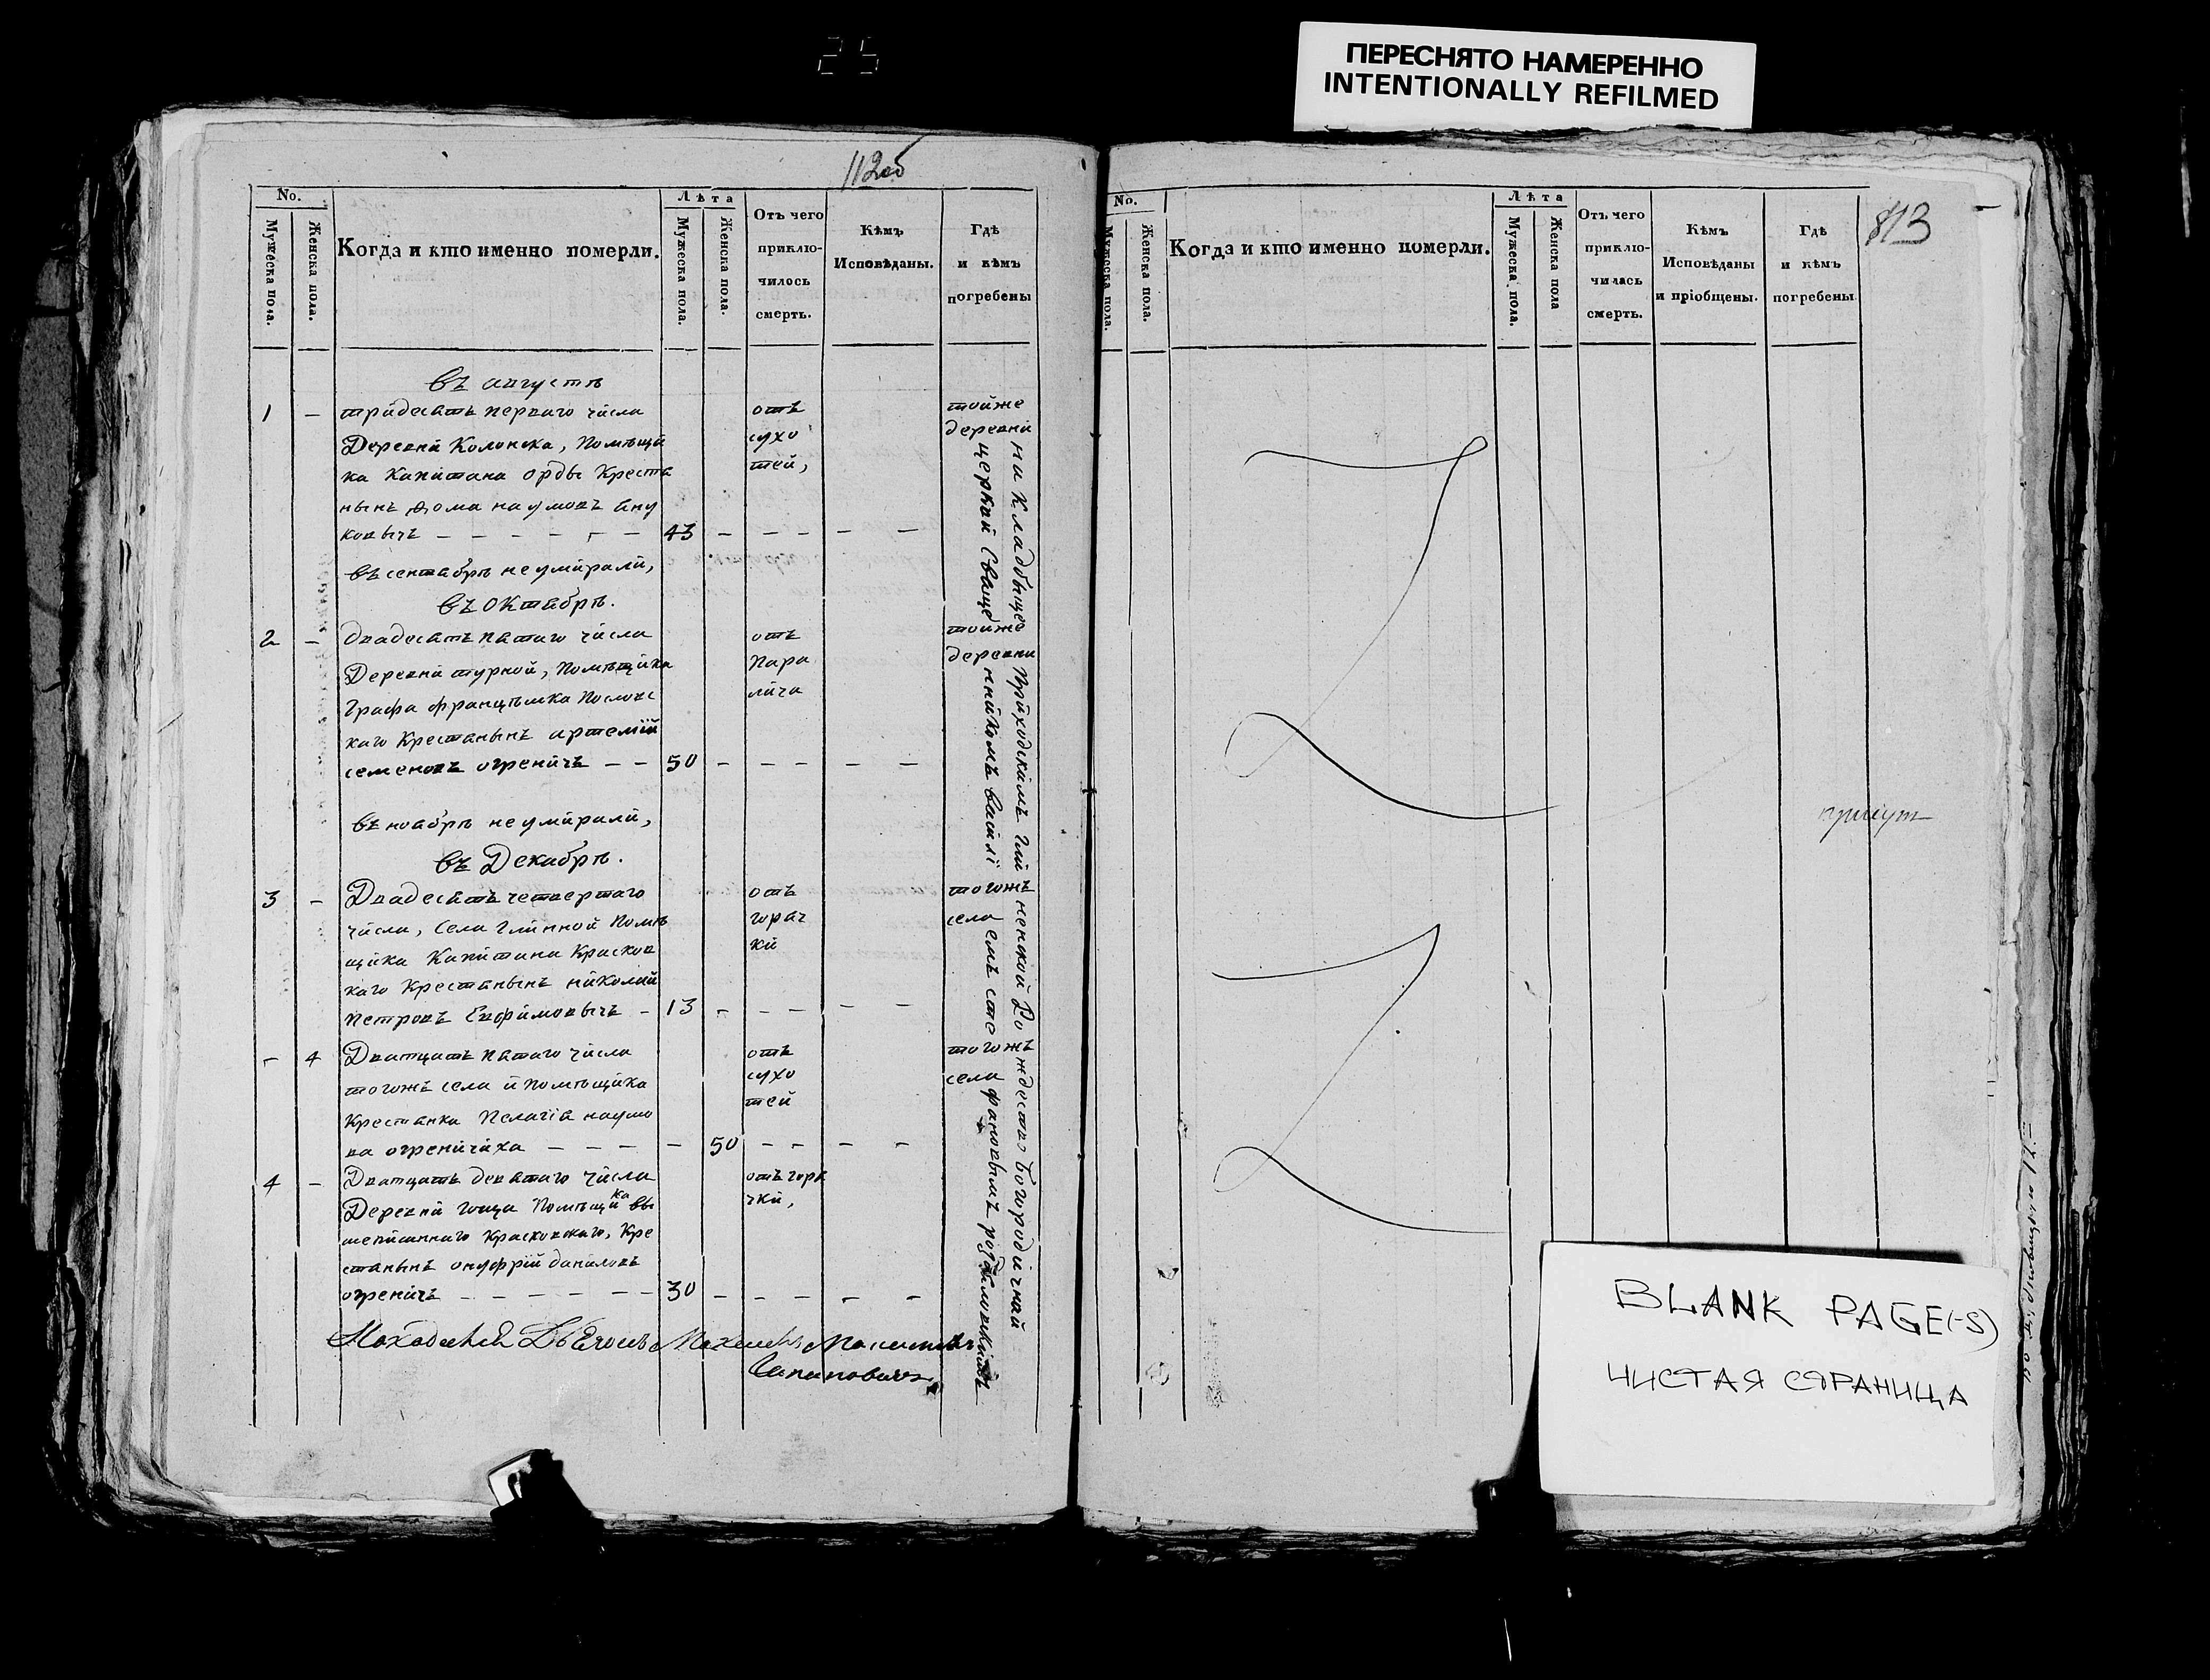 25
ПЕРЕСНЯТО НАМЕРЕННО
INTENTIONALLY REFILMED
112об
No.
Мужеска пола.
Женска пола.
Когда и кто именно померли.
Лѣта
Мужеска пола.
Женска пола.
Отъ чего
приклю-
чилось
смерть.
Кѣмъ
Исповѣданы.
Гдѣ
и кѣмъ
погребены
въ августѣ
1 – тридесать перваго числа
Деревни Колонска, Помѣщи
ка Капитана орды Креста
нынъ Фома наумовъ
ковычъ – – – – – – 43 – – – – –
отъ
сухо
тей,
тойже
деревни
въ сентабрѣ неумирали,
въ Октабрѣ.
2 – двадесать патаго числа
Деревни турной, Помѣщика
Графа францѣшка Пословс
каго Крестанынъ артемий
семеновъ огреничъ – – 50 – – – – –
отъ
Пара
лича
тойже
деревни
въ ноабрѣ неумирали,
въ Декабрѣ.
3 – Двадесать четвертаго
числа, села Глинной Помѣ
щика Капитана Красков
каго Крестанынъ николай
Петровъ Ефимовычъ – 13 – – – – –
отъ
горач
ки
тогожъ
села
– 4 Дватцать патаго числа
тогожъ села и помѣщика
Крестанка Пелагіа наумо
ва огреничиха – – – – 50 – – – –
отъ
сухо
тей
тогожъ
села
4 – Дватцать деватаго числа
Деревни гоща Помѣщика вы
шеписаннаго Красковскаго, Кре
станынъ онуфрій даниловъ
огреничъ – – – – – – 30 – – – – –
отъ гора
чки,
на Кладбыще Приходскимъ Глинненской Рождество Богородичнай
церкви Сващенникомъ василіемъ стефановымъ
No.
Мужеска пола.
Женска пола.
Когда и кто именно померли.
Лѣта
Мужеска пола.
Женска пола
Отъ чего
приклю-
чилась
смерть.
Кѣмъ
Исповѣданы
и пріобщены.
Гдѣ
и кѣмъ
погребены
BLANK PAGE(-S)
ЧИСТАЯ СТРАНИЦА